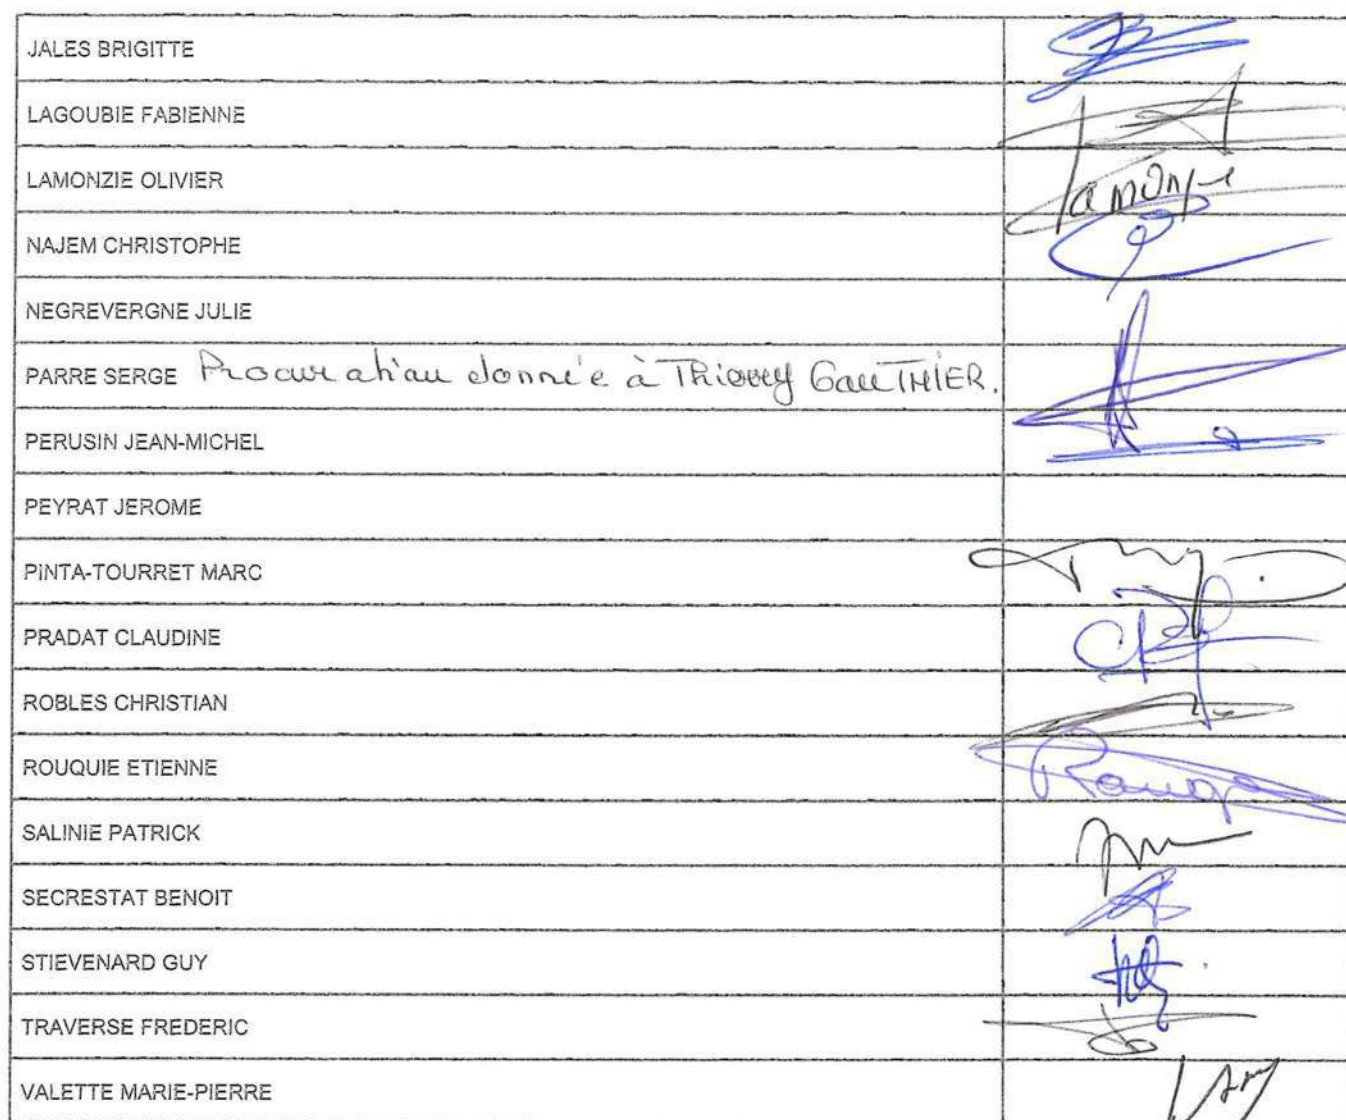 JALES BRIGITTE
LAGOUBIE FABIENNE
LAMONZIE OLIVIER
Lamonzie
NAJEM CHRISTOPHE
NEGREVERGNE JULIE
PARRE SERGE Procuration donnée à Thierry GauTHIER.
PERUSIN JEAN-MICHEL
PEYRAT JEROME
PINTA-TOURRET MARC
PRADAT CLAUDINE
ROBLES CHRISTIAN
ROUQUIE ETIENNE
SALINIE PATRICK
SECRESTAT BENOIT
STIEVENARD GUY
TRAVERSE FREDERIC
VALETTE MARIE-PIERRE